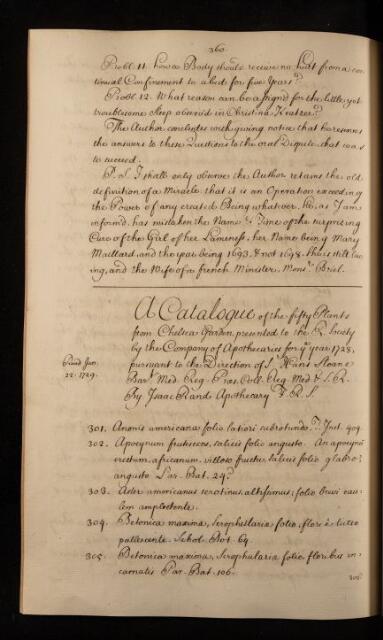 360
Probl. 11. how a Body should receive no hurt from a con-
tinual Confinement to a bed for five Years?
Probl. 12. What reason can be assign'd for the little, yet
troublesome Sleep observ'd in Christina
The Author concludes with giving notice that he reserves
the answers to these Questions to the oral Dispute that was
to succeed.
P.S. I shall only observe the Author retains the old
definition of a Miracle, that it is an Operation exceeding
the Power of any created Being whatever. He, as I am
inform'd, has mistaken the Name & Time of the surprising
Cure of the Girl of her Lameness, her Name being Mary
Maillard, and the year being 1693, & not 1698. She is still liv-
ing, and the Wife of a french Minister, Mons.r Briel.
A Catalogue of the fifty Plants
from Chelsea Garden, presented to the R. Society
by the Company of Apothecaries for ye year 1728,
pursuant to the Direction of Sr. Hans Sloane
Bart. Med. Reg. Præs. Coll. Reg. Med. & S. R.
By Isaac Rand Apothecary F. R. S.
Read Jan.
22. 1729.
301. Anonis americana folio latiori subrotundo. Inst. 409.
302. Apocynum frutescens, salicis folio angusto. An apocynum
erectum, africanum, villoso fructu, salicis folio glabro
angusto Par. Bat. 24?
303. Aster americanus serotinus altissimus, folio brevi cau-
lem amplectente.
304. Betonica maxima, Scrophularia folio, flore luteo
pallescente. Schol. Bot. 69.
305. Betonica maxima, Scrophularia folio floribus in-
carnatis Par. Bat. 106.